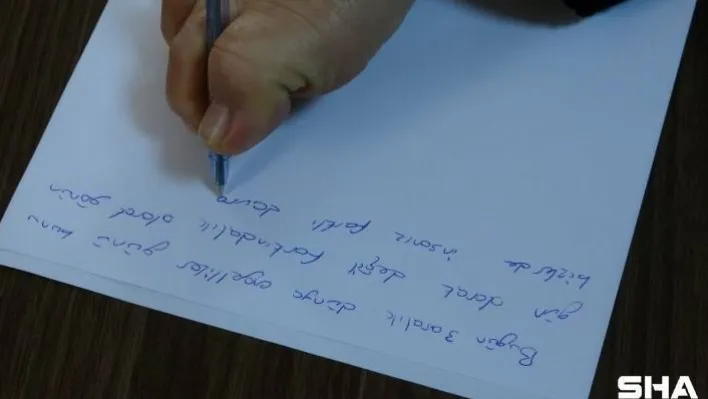 Bugün 3 aralık dünya engelliler günü bunu
gün olarak değil farkındalık olarak görün
bizlerde insanız farklı davra
SHA